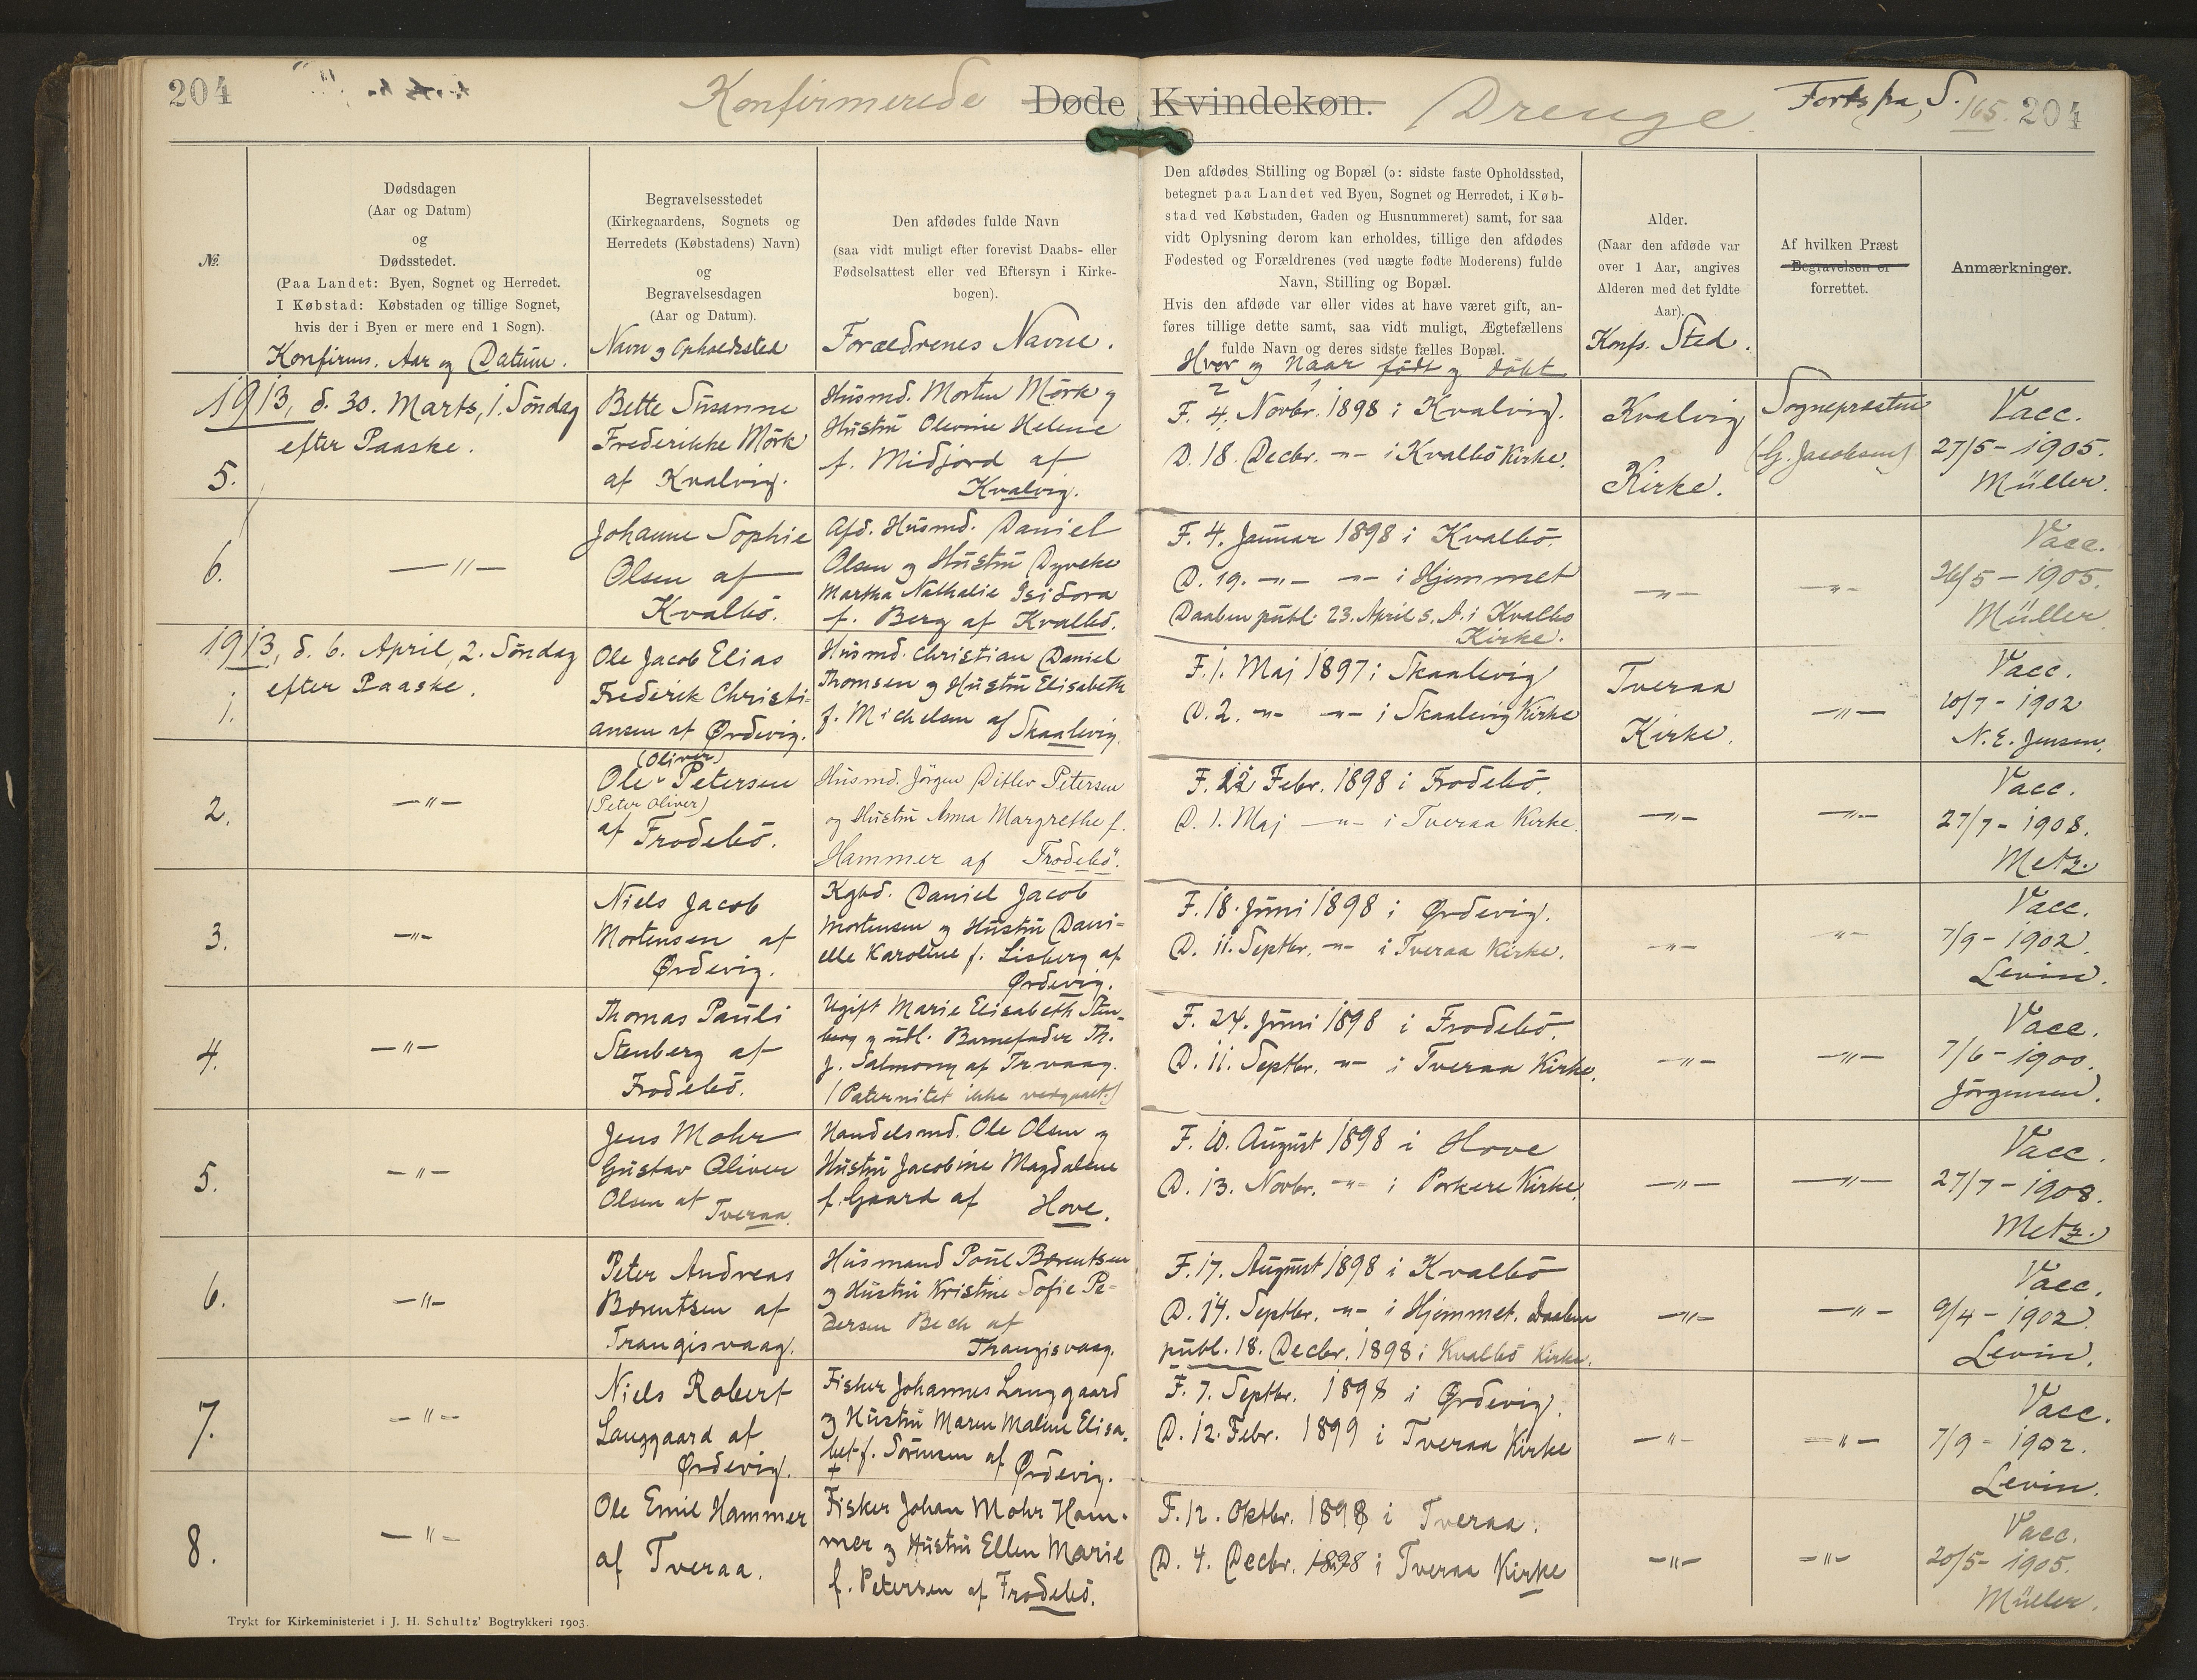 204
Konfirmerede Døde Kvindekøn. Drenge. Forts. fra S. 165. 204
№.
Dødsdagen
(Aar og Datum)
og
Dødsstedet.
(Paa Landet: Byen, Sognet og Herredet.
I Købstad: Købstaden og tillige Sognet,
hvis der i Byen er mere end 1 Sogn).
Konfirms. Aar og Datum.
Begravelsesstedet
(Kirkegaardens, Sognets og
Herredets (Købstadens) Navn)
og
Begravelsesdagen
(Aar og Datum).
Navn og Opholdssted
Den afdødes fulde Navn
(saa vidt muligt efter forevist Daabs- eller
Fødselsattest eller ved Eftersyn i Kirke-
bogen).
Forældrenes Navne.
Den afdødes Stilling og Bopæl (ɔ: sidste faste Opholdssted,
betegnet paa Landet ved Byen, Sognet og Herredet, i Køb-
stad ved Købstaden, Gaden og Husnummeret) samt, for saa
vidt Oplysning derom kan erholdes, tillige den afdødes
Fødested og Forældrenes (ved uægte fødte Moderens) fulde
Navn, Stilling og Bopæl.
Hvis den afdøde var eller vides at have været gift, an-
føres tillige dette samt, saa vidt muligt, Ægtefællens
fulde Navn og deres sidste fælles Bopæl.
Hvor og Naar født og døbt
Alder.
(Naar den afdøde var
over 1 Aar, angives
Alderen med det fyldte
Aar).
Konfs. Sted.
Af hvilken Præst
Begravelsen er
forrettet.
Anmærkninger.
5.
1913, d. 30. Marts, 1. Søndag
efter Paaske.
Bette Susanne
Frederikke Mörk
af Kvalvig.
Husmd. Morten Mörk og
Hustru Olevine Helene
f. Midjord af
Kvalvig.
2
F. 4. Novbr. 1898 i Kvalvig.
D. 18. Decbr. -"- i Kvalbö Kirke.
Kvalvig
Kirke.
Sognepræsten
(G. Jacobsen)
Vacc.
27/5 - 1905.
Müller.
6.
-"-
Johanne Sophie
Olsen af
Kvalbö.
Afd. Husmd. Daniel
Olsen og Hustru Dyveke
Martha Nathalie Isidora
f. Berg af Kvalbö.
F. 4. Januar 1898 i Kvalbö.
D. 19. -"- -"- i Hjemmet
Daaben publ. 23. April s. A. i Kvalbö
Kirke.
-"-
-"-
Vacc.
26/5 - 1905.
Müller.
1.
1913, d. 6. April, 2. Søndag
efter Paaske.
Ole Jacob Elias
Frederik Christi-
ansen af Ørdevig.
Husmd. Christian Daniel
Thomsen og Hustru Elisabeth
f. Michelsen af Skaalevig.
F. 1. Maj 1897 i Skaalevig
D. 2. -"- -"- i Skaalevig Kirke
Tveraa
Kirke.
-"-
Vacc.
10/7 - 1902
N. E. Jensen.
2.
-"-
(Oliver)
Ole Petersen
(Peter Oliver)
af Frodebö.
Husmd. Jörgen Ditlev Petersen
og Hustru Anna Margrethe f.
Hammer af Frodebö.
F. 12 Febr. 1898 i Frodebö.
D. 1. Maj -"- i Tveraa Kirke.
-"-
-"-
Vacc.
27/7 - 1908.
Metz.
3.
-"-
Niels Jacob
Mortensen af
Ørdevig.
Kgbd. Daniel Jacob
Mortensen og Hustru Dani-
elle Karoline f. Lisberg af
Ørdevig.
F. 18. Juni 1898 i Ørdevig.
D. 11. Septbr. -"- i Tveraa Kirke.
-"-
-"-
Vacc.
7/9 - 1902.
Levin.
4.
-"-
Thomas Pauli
Stenberg af
Frodebö.
Ugift Marie Elisabeth Sten-
berg og udl. Barnefader Th.
J. Salmony af Trvaag.
(Paternitet ikke vedgaaet.)
F. 24. Juni 1898 i Frodebö.
D. 11. Septbr. -"- i Tveraa Kirke.
-"-
-"-
Vacc.
7/6 - 1900.
Jörgensen.
5.
-"-
Jens Mohr
Gustav Oliver
Olsen af Tveraa.
Handelsmd. Ole Olsen og
Hustru Jacobine Magdalene
f. Gaard af Hove.
F. 10. August 1898 i Hove
D. 13. Novbr. -"- i Porkere Kirke.
-"-
-"-
Vacc.
27/7 - 1908.
Metz.
6.
-"-
Peter Andreas
Bærentsen af
Trangisvaag.
Husmand Poul Bærentsen
og Hustru Kristine Sofie Pe-
dersen Bech af
Thrangisvaag.
F. 17. August 1898 i Kvalbö
D. 14. Septbr. -"- i Hjemmet. Daaben
publ. 18. Decbr. 1898 i Kvalbö Kirke.
-"-
-"-
Vacc.
9/4 - 1902.
Levin.
7.
-"-
Niels Robert
Langgaard af
Ørdevig.
Fisker Johannes Langgaard
og Hustru Maren Malene Elisa-
bet f. Sörensen af Ørdevig.
F. 7. Septbr. 1898 i Ørdevig.
D. 12. Febr. 1899 i Tveraa Kirke
-"-
-"-
Vacc.
7/9 - 1902.
Levin.
8.
-"-
Ole Emil Hammer
af Tveraa.
Fisker Johan Mohr Ham-
mer og Hustru Ellen Marie
f. Petersen af Frodebö.
F. 12. Oktbr. 1898 i Tveraa.
D. 4. Decbr. 1898 i Tveraa Kirke
-"-
-"-
Vacc.
20/5 - 1905.
Müller.
Trykt for Kirkeministeriet i J. H. Schultz' Bogtrykkeri 1903.